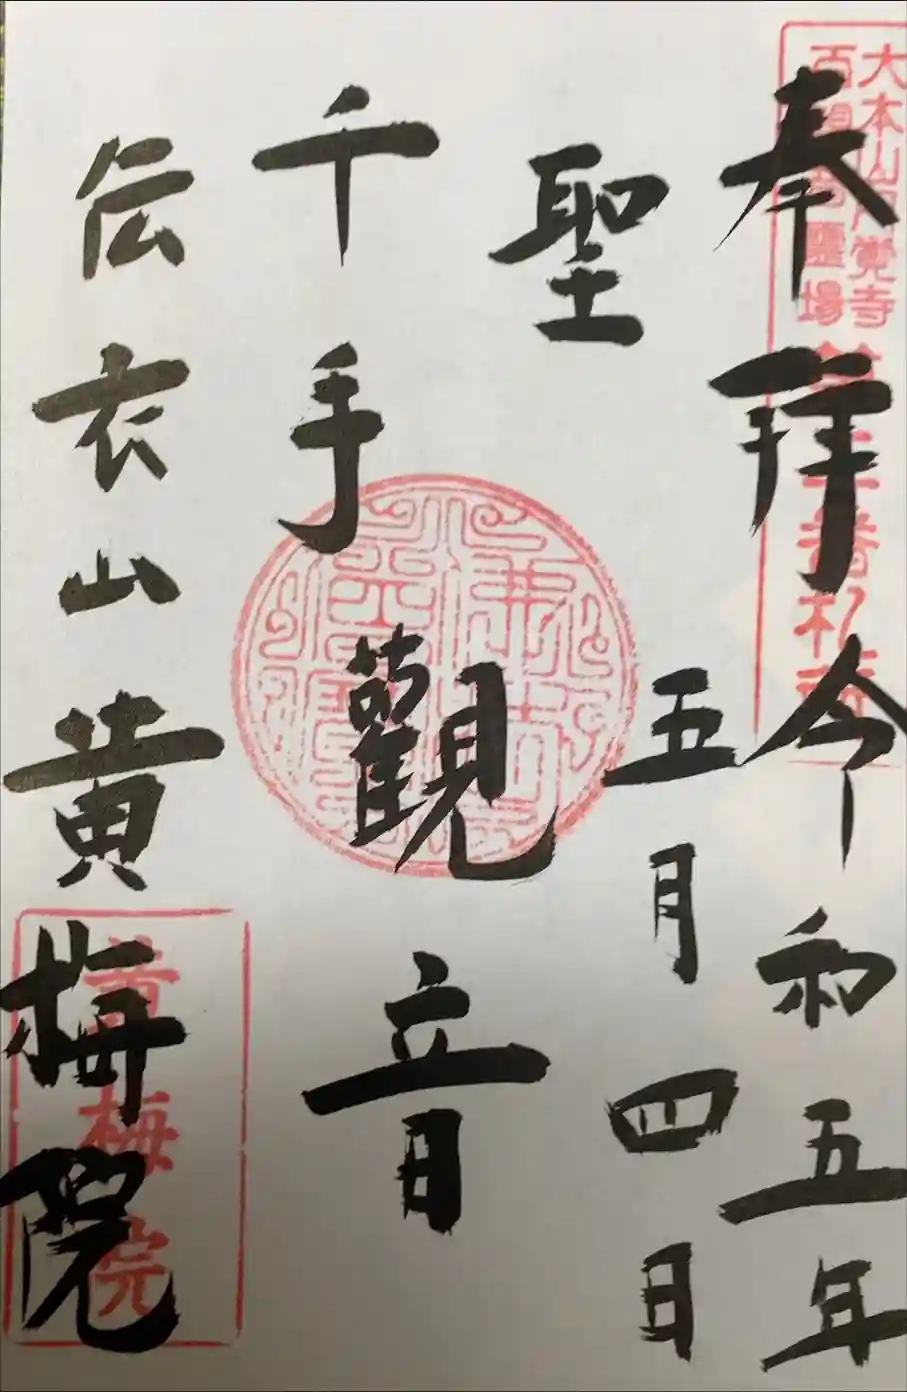 奉拝 令和五年
五月四日
聖
千手觀音
伝衣山黄梅院
大本山円覚寺
百観音霊場
黄梅院